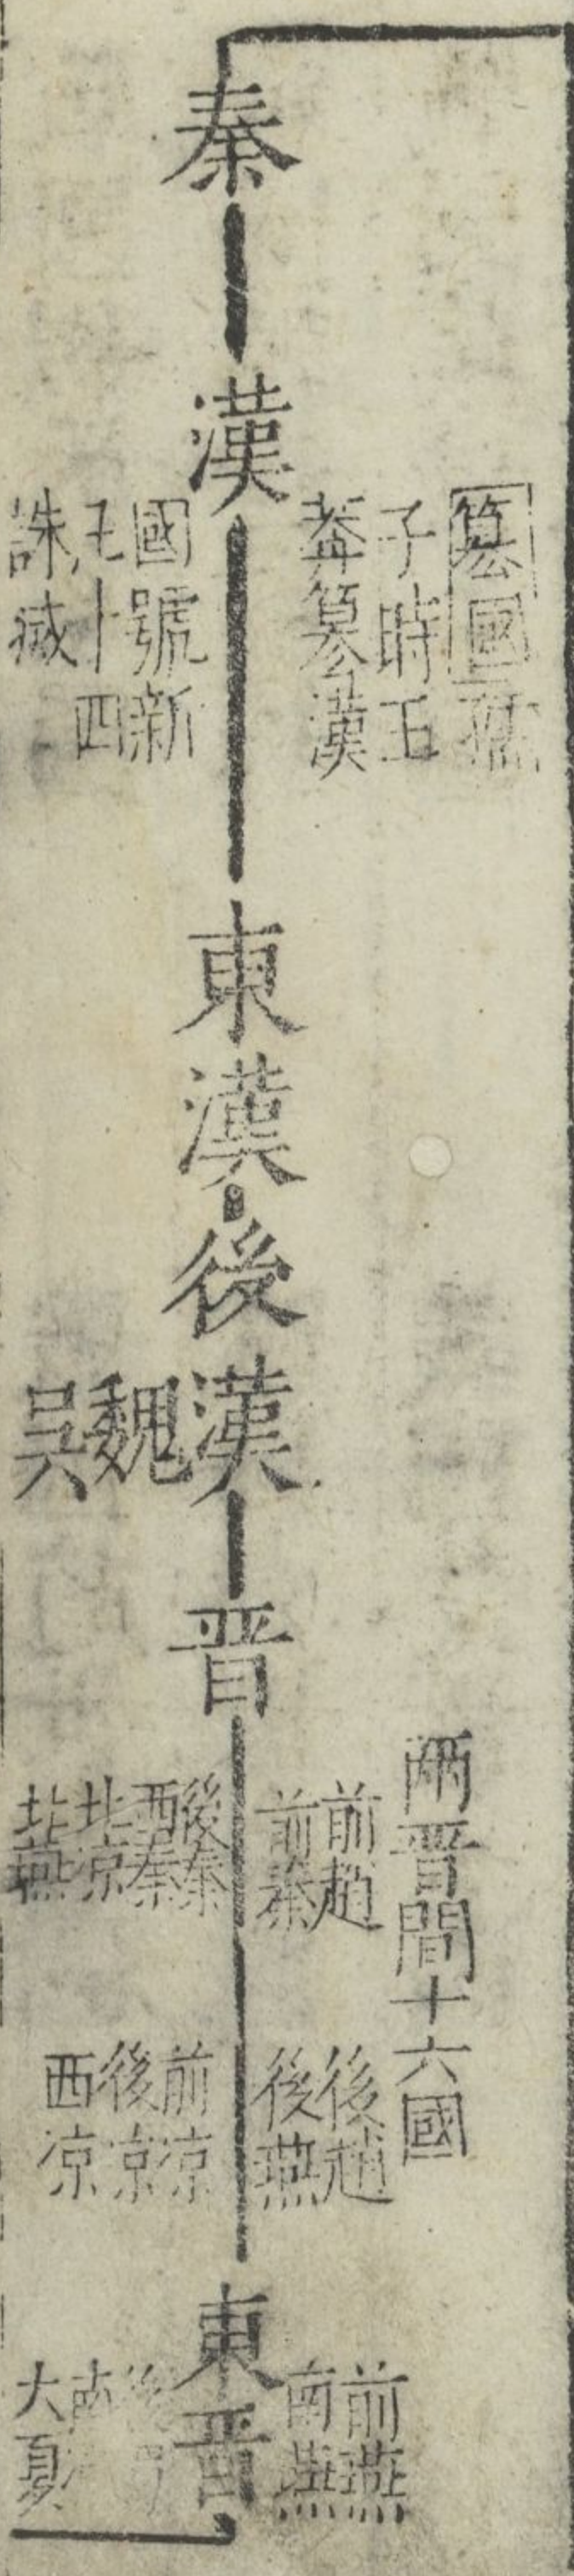 秦
漢
篡國孺
子時王
莽篡漢
國號新
凡十四
誅滅
東漢
後漢
魏
吳
晋
兩晋間十六國
前趙
前秦
後秦
西秦
北凉
北燕
後趙
後燕
前凉
後凉
西凉
東晋
前燕
南燕
南
大夏